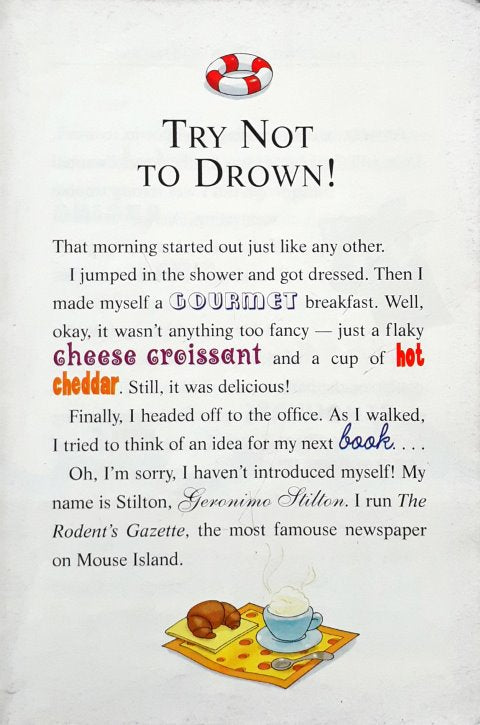 TRY NOT
TO DROWN!
That morning started out just like any other.
I jumped in the shower and got dressed. Then I
made myself a GOURMET breakfast. Well,
okay, it wasn't anything too fancy — just a flaky
cheese croissant and a cup of hot
cheddar. Still, it was delicious!
Finally, I headed off to the office. As I walked,
I tried to think of an idea for my next book. . . .
Oh, I'm sorry, I haven't introduced myself! My
name is Stilton, Geronimo Stilton. I run The
Rodent's Gazette, the most famouse newspaper
on Mouse Island.